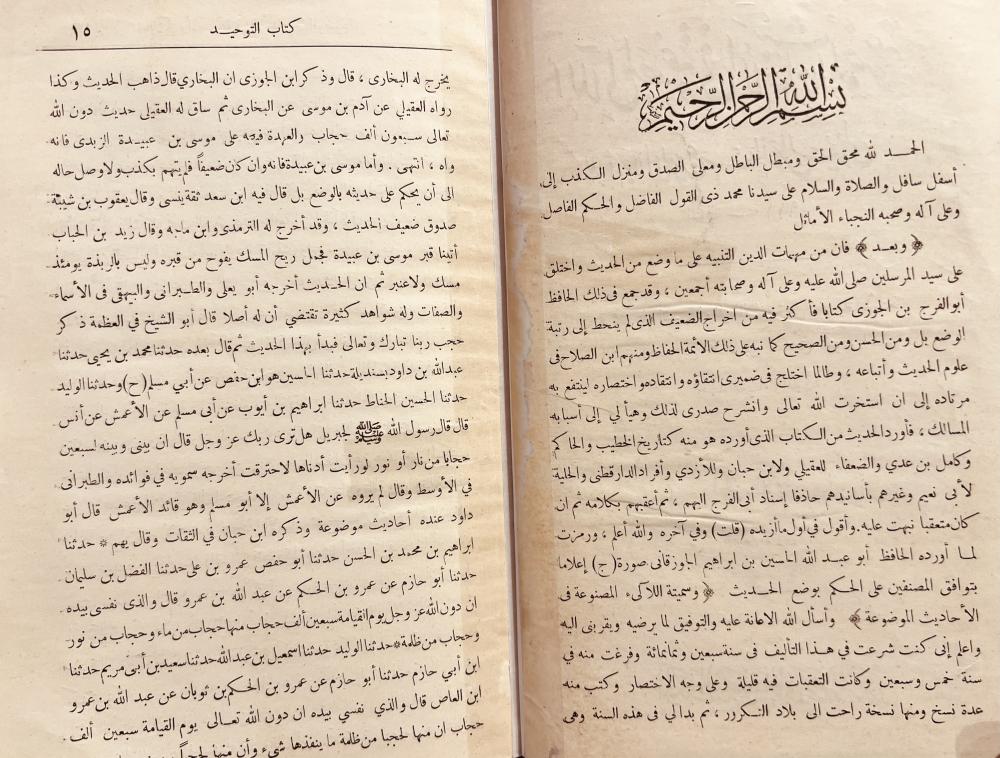 بسم الله الرحمن الرحيم
الحمد لله محق الحق ومبطل الباطل ومعلى الصدق ومنزل الكذب إلى
أسفل سافل والصلاة والسلام على سيدنا محمد ذى القول الفاضل والحكم الفاصل
وعلى آله وصحبه النجباء الأماثل
﴿ وبعد ﴾ فان من مهمات الدين التنبيه على ما وضع من الحديث واختلق
على سيد المرسلين صلى الله عليه وعلى آله وصحابته أجمعين ، وقد جمع فى ذلك الحافظ
أبو الفرج بن الجوزى كتابا فأكثر فيه من اخراج الضعيف الذى لم ينحط إلى رتبة
الوضع بل ومن الحسن ومن الصحيح كما نبه على ذلك الأئمة الحفاظ ومنهم ابن الصلاح فى
علوم الحديث وأتباعه ، وطالما اختلج فى ضميرى انتقاؤه وانتقاده واختصاره لينتفع به
مرتاده إلى ان استخرت الله تعالى وانشرح صدرى لذلك وهيأ لي إلى أسبابه
المسالك ، فأورد الحديث من الكتاب الذى أورده هو منه كتاريخ الخطيب والحاكم
وكامل بن عدي والضعفاء للعقيلي ولابن حبان وللأزدي وأفراد الدارقطنى والحلية
لأبى نعيم وغيرهم بأسانيدهم حاذفا إسناد أبى الفرج اليهم ، ثم أعقبهم بكلامه ثم ان
كان متعقبا نبهت عليه. وأقول في أول ما أزيده (قلت) وفي آخره والله أعلم ، ورمزت
لما أورده الحافظ أبو عبد الله الحسين بن ابراهيم الجوزقانى صورة (ج) إعلاما
بتوافق المصنفين على الحكم بوضع الحديث ﴿ وسميتة اللآلىء المصنوعة فى
الأحاديث الموضوعة ﴾ وأسأل الله الاعانة عليه والتوفيق لما يرضيه ويقربنى اليه
واعلم إنى كنت شرعت في هذا التأليف فى سنة سبعين وثمانمائة وفرغت منه في
سنة خمس وسبعين وكانت التعقبات فيه قليلة وعلى وجه الاختصار وكتب منه
عدة نسخ ومنها نسخة راحت الى بلاد التكرور ، ثم بدا لي فى هذه السنة وهى
كتاب التوحيد ١٥
يخرج له البخارى ، قال وذكر ابن الجوزى ان البخاري قال ذاهب الحديث وكذا
رواه العقيلي عن آدم بن موسى عن البخارى ثم ساق له العقيلى حديث دون الله
تعالى سبعون ألف حجاب والعهدة فيه على موسى بن عبيدة الزبدى فانه
واه ، انتهى . وأما موسى بن عبيدة فانه وان كان ضعيفاً فلم يتهم بكذب ولا وصل حاله
الى أن يحكم على حديثه بالوضع بل قال فيه ابن سعد ثقة ينسى وقال يعقوب بن شيبة
صدوق ضعيف الحديث ، وقد أخرج له الترمذى وابن ماجه وقال زيد بن الحباب
أتينا قبر موسى بن عبيدة فجعل ريح المسك يفوح من قبره وليس بالربذة يومئذ
مسك ولا عنبر ثم ان الحديث أخرجه أبو يعلى والطبرانى والبيهقى فى الأسماء
والصفات وله شواهد كثيرة تقتضي أن له أصلا قال أبو الشيخ في العظمة ذكر
حجب ربنا تبارك وتعالى فبدأ بهذا الحديث ثم قال بعده حدثنا محمد بن يحيى حدثنا
عبدالله بن داود بسنديلة حدثنا الحسين هو ابن حفص عن أبي مسلم (ح) وحدثنا الوليد
حدثنا الحسين الخناط حدثنا ابراهيم بن أيوب عن أبى مسلم عن الأعمش عن أنس
قال قال رسول الله ﷺ لجبريل هل ترى ربك عز وجل قال ان بينى وبينه لسبعين
حجابا من نار أو نور لو رأيت أدناها لاحترقت أخرجه سمويه في فوائده والطبرانى
في الأوسط وقال لم يروه عن الأعمش إلا أبو مسلم وهو قائد الأعمش قال أبو
داود عنده أحاديث موضوعة وذكره ابن حبان في الثقات وقال يهم * حدثنا
ابراهيم بن محمد بن الحسن حدثنا أبو حفص عمرو بن على حدثنا الفضل بن سليمان
حدثنا أبو حازم عن عمرو بن الحكم عن عبد الله بن عمرو قال والذى نفسى بيده
ان دون الله عز وجل يوم القيامة سبعين ألف حجاب منها حجاب من ماء وحجاب من نور
وحجاب من ظلمة * حدثنا الوليد حدثنا اسمعيل بن عبد الله حدثنا سعيد بن أبى مريم حدثنا
ابن أبي حازم حدثنا أبو حازم عن عمرو بن الحكم بن ثوبان عن عبد الله بن عمرو
ابن العاص قال والذي نفسي بيده ان دون الله تعالى يوم القيامة سبعين ألف
حجاب ان منها لحجبا من ظلمة ما ينفذها شيء وأن منها لحجباً